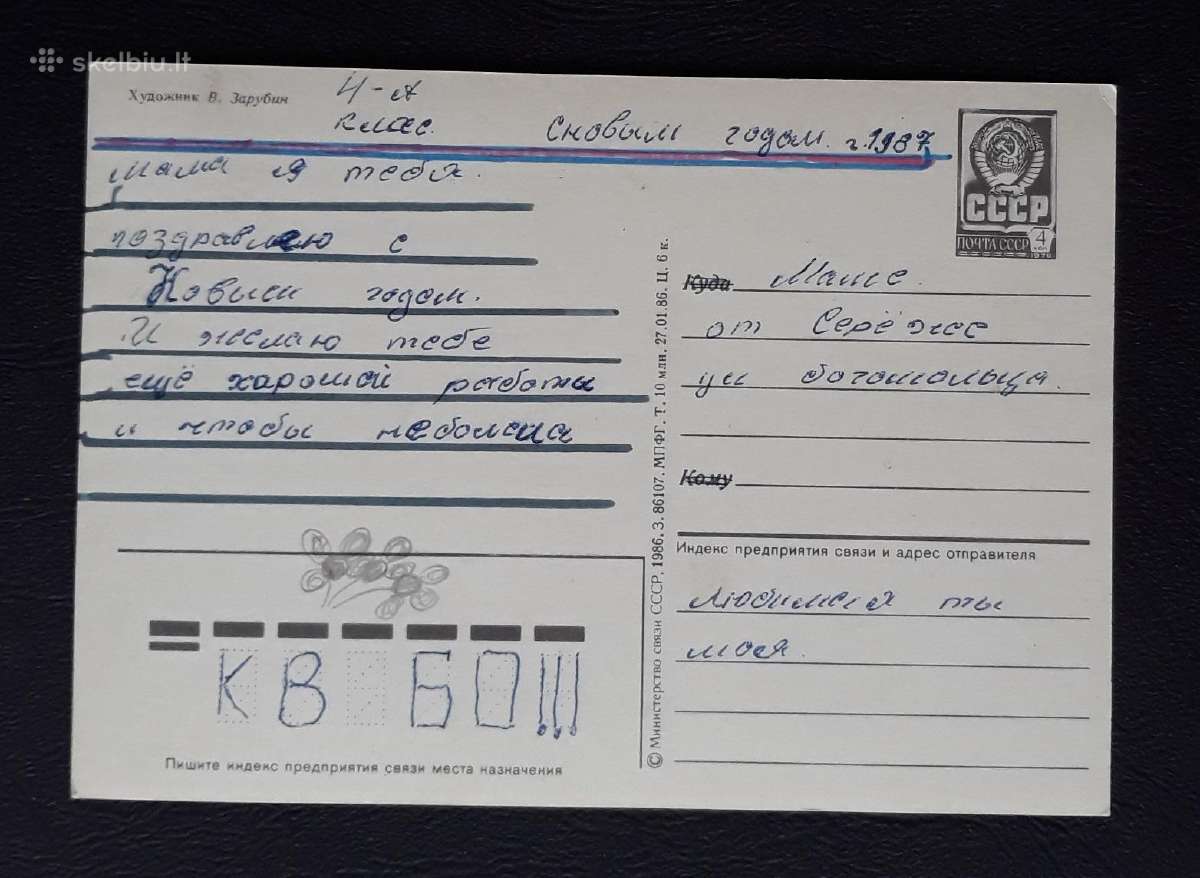 skelbiu.lt
Художник В. Зарубин
4-А
класс.
сновым годом. г.1987
мама я тебя.
поздравлею с
Новым годом.
И желаю тебе
ещё харошой работы
и чтобы неболела
СССР
ПОЧТА СССР 4 коп
1976
Куда Маме.
от Серёжее
ул богомольца.
Кому
Индекс предприятия связи и адрес отправителя
любимая ты
моя.
© Министерство связи СССР, 1986. З. 86107. МПФГ. Т. 10 млн. 27.01.86. Ц. 6 к.
КВ БО!!!
Пишите индекс предприятия связи места назначения